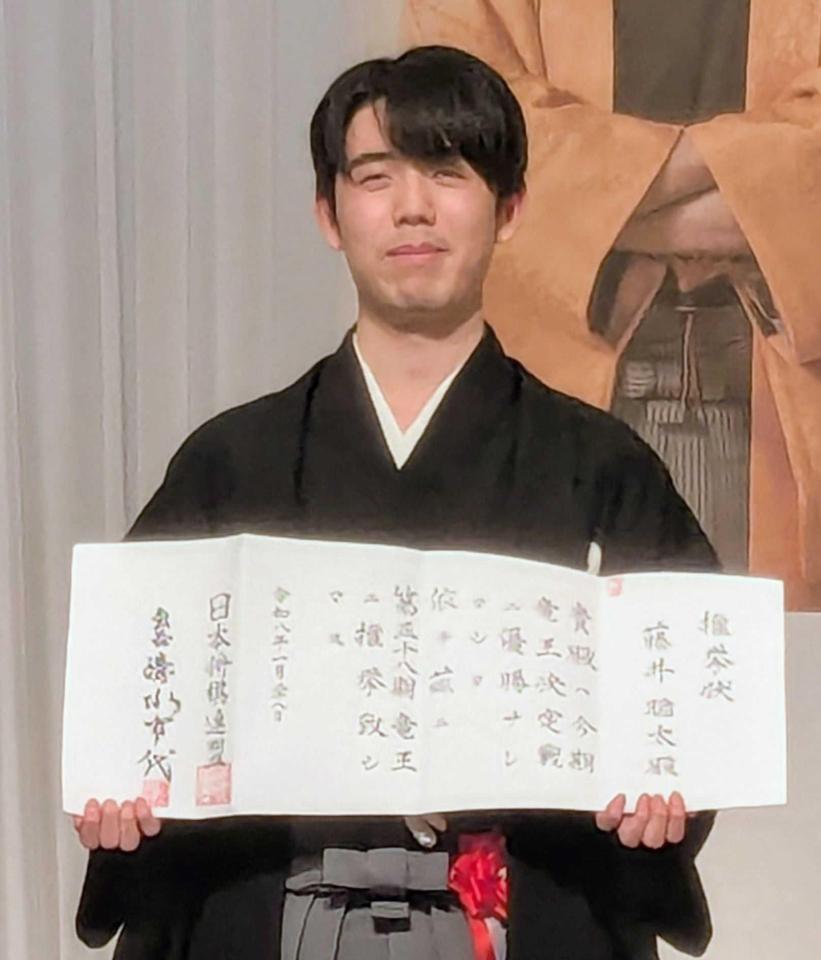 推挙状
藤井聡太殿
貴殿ハ今期
竜王決定戦
ニ優勝ナレ
マシタ
依テ茲ニ
第三十八期竜王
ニ推挙致シ
マス
令和八年一月
日本将棋連盟
会長 清水市代